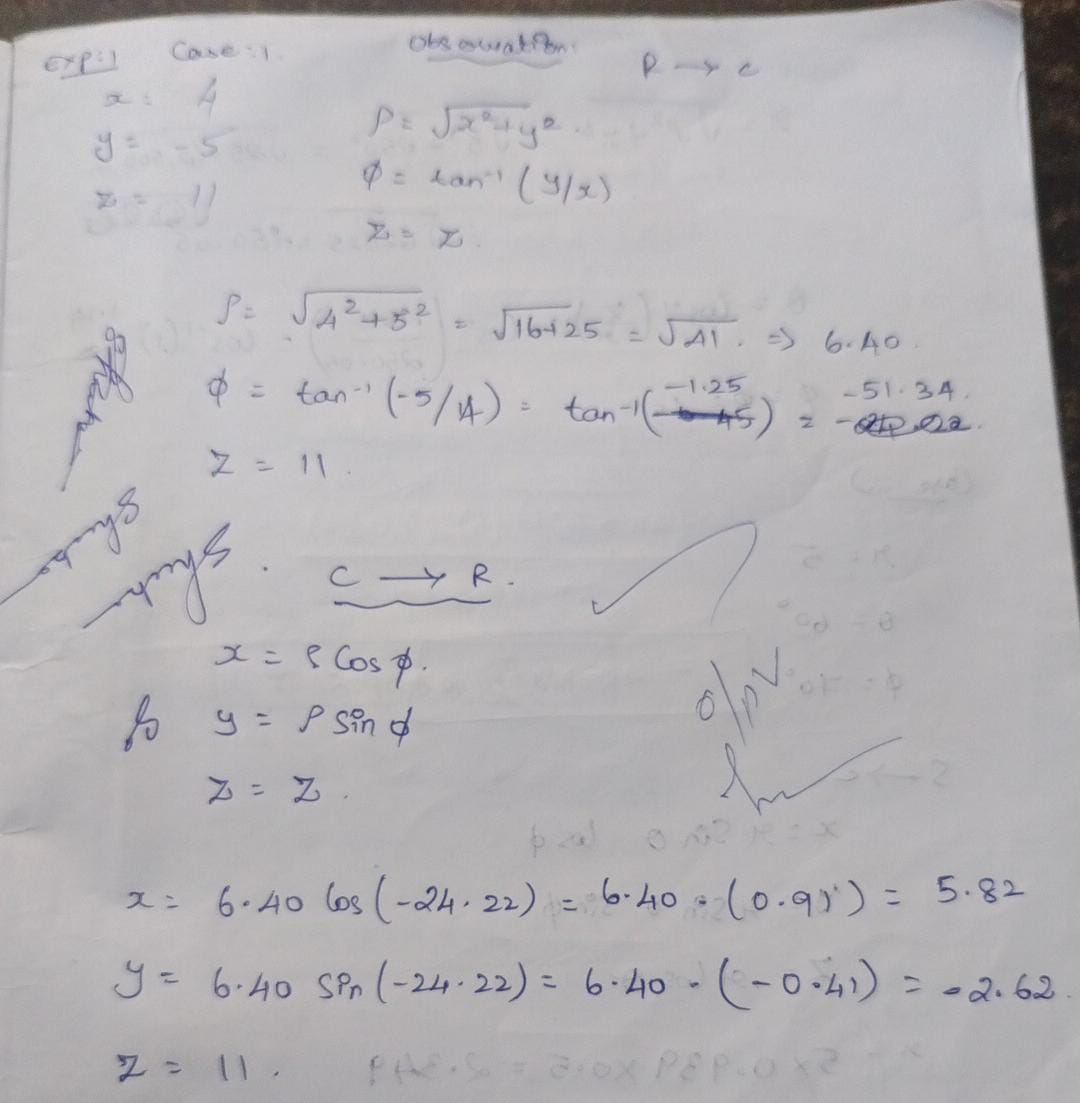 Exp:1 Case:1. Observation: R → C
x = 4
y = -5
z = 11
ρ = √x²+y²
φ = tan⁻¹ (y/x)
z = z.
ρ = √4²+5² = √16+25 = √41. ⇒ 6.40.
φ = tan⁻¹ (-5/4) = tan⁻¹(-1.25) = -51.34.
z = 11.
C → R.
x = ρ Cos φ.
y = ρ Sin φ
z = z.
o/p
x = 6.40 Cos (-24.22) = 6.40 · (0.91) = 5.82
y = 6.40 Sin (-24.22) = 6.40 · (-0.41) = -2.62.
z = 11.